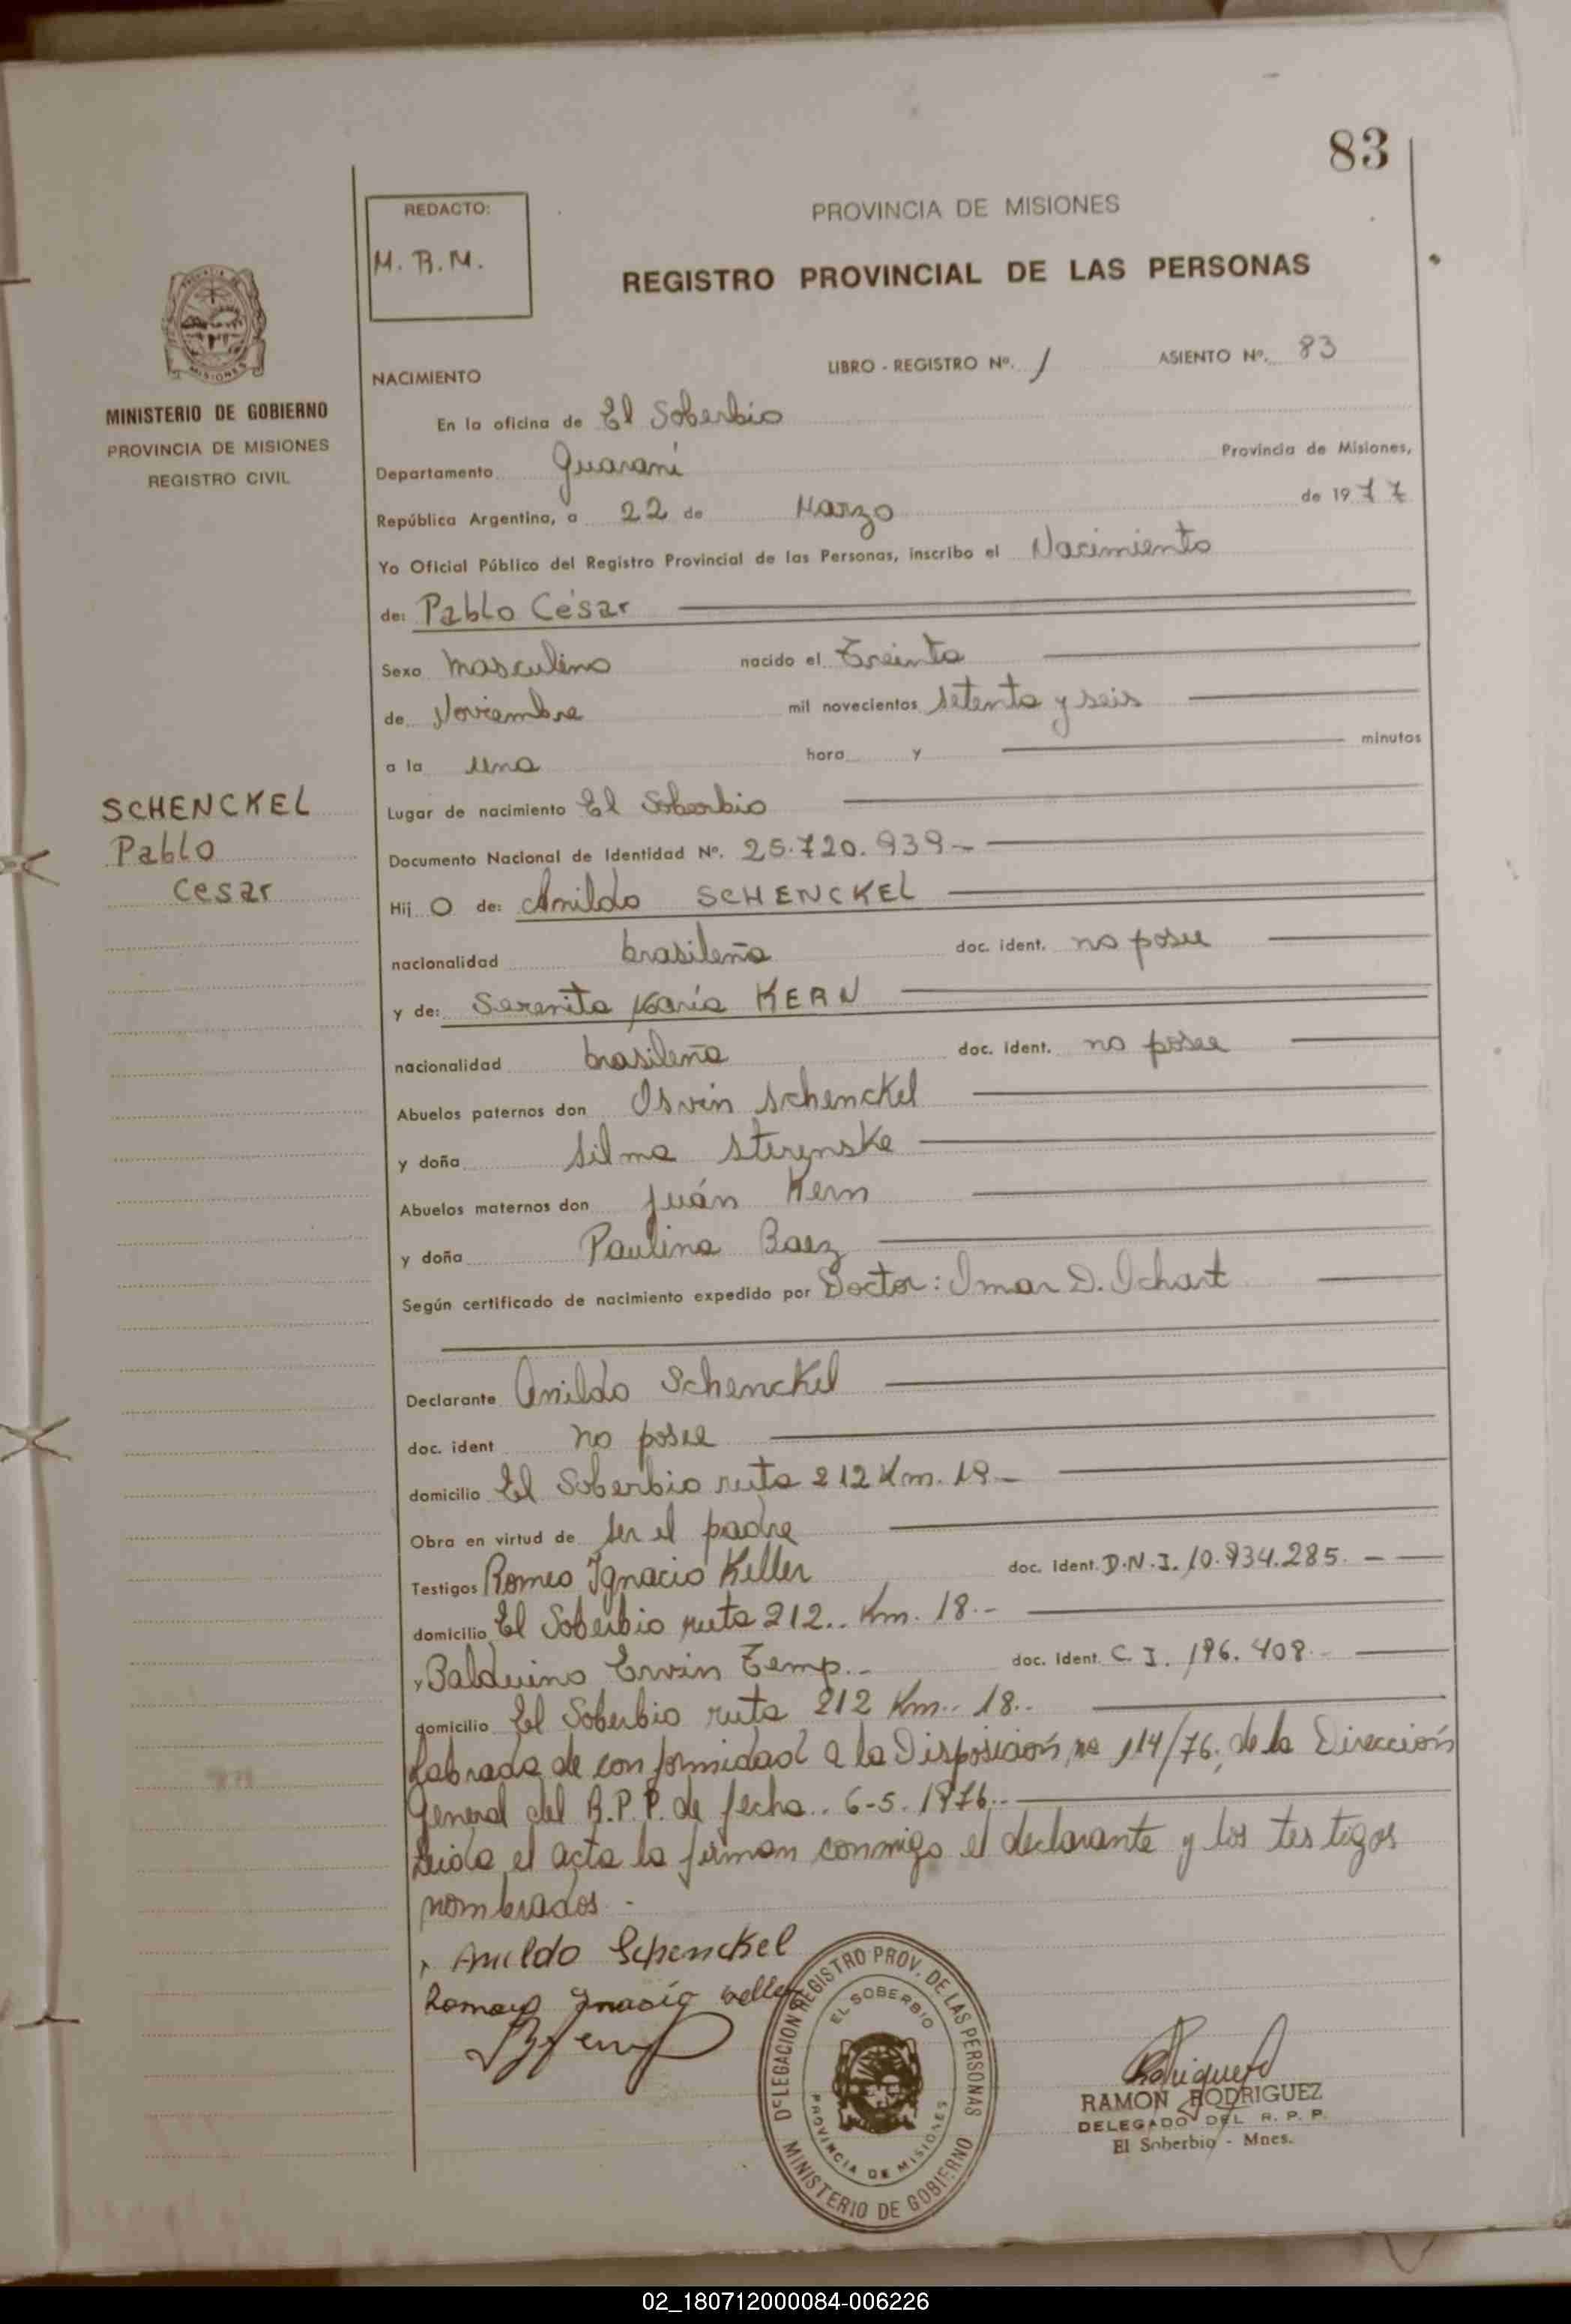 83
REDACTO:
M. R. M.
PROVINCIA DE MISIONES
REGISTRO PROVINCIAL DE LAS PERSONAS
MISIONES
MINISTERIO DE GOBIERNO
PROVINCIA DE MISIONES
REGISTRO CIVIL
NACIMIENTO LIBRO - REGISTRO Nº. 1 ASIENTO Nº. 83
En la oficina de El Soberbio
Departamento Guaraní Provincia de Misiones,
República Argentina, a 22 de Marzo de 1977
Yo Oficial Público del Registro Provincial de las Personas, inscribo el Nacimiento
de: Pablo César
Sexo masculino nacido el Treinta
de Noviembre mil novecientos setenta y seis
a la una hora y minutos
SCHENCKEL
Pablo
Cesar
Lugar de nacimiento El Soberbio
Documento Nacional de Identidad Nº. 25.720.939-
Hij O de: Anildo SCHENCKEL
nacionalidad brasileña doc. ident. no posee
y de: Serenita María KERN
nacionalidad brasileña doc. ident. no posee
Abuelos paternos don Osvin Schenckel
y doña Silma
Abuelos maternos don Juán Kern
y doña Paulina Baez
Según certificado de nacimiento expedido por Doctor: Omar D. Ichart
Declarante Anildo Schenckel
doc. ident no posee
domicilio El Soberbio ruta 212 Km. 18.-
Obra en virtud de ser el padre
Testigos Romeo Ignacio Keller doc. ident. D.N.I. 10.934.285. -
domicilio El Soberbio ruta 212.. Km. 18.-
y Balduino Ervin Temp.- doc. ident. C. I. 196.408.-
domicilio El Soberbio ruta 212 Km.. 18..
Labrada de conformidad a la Disposición nº 114/76, de la Dirección
General del R.P.P. de fecha.. 6-5. 1976.-
Leida el acta la firman conmigo el declarante y los testigos
nombrados -
Anildo Schenckel
DELEGACION REGISTRO PROV. DE LAS PERSONAS
EL SOBERBIO
PROVINCIA DE MISIONES
MINISTERIO DE GOBIERNO
RAMON RODRIGUEZ
DELEGADO DEL R. P. P.
El Soberbio - Mnes.
02_180712000084-006226